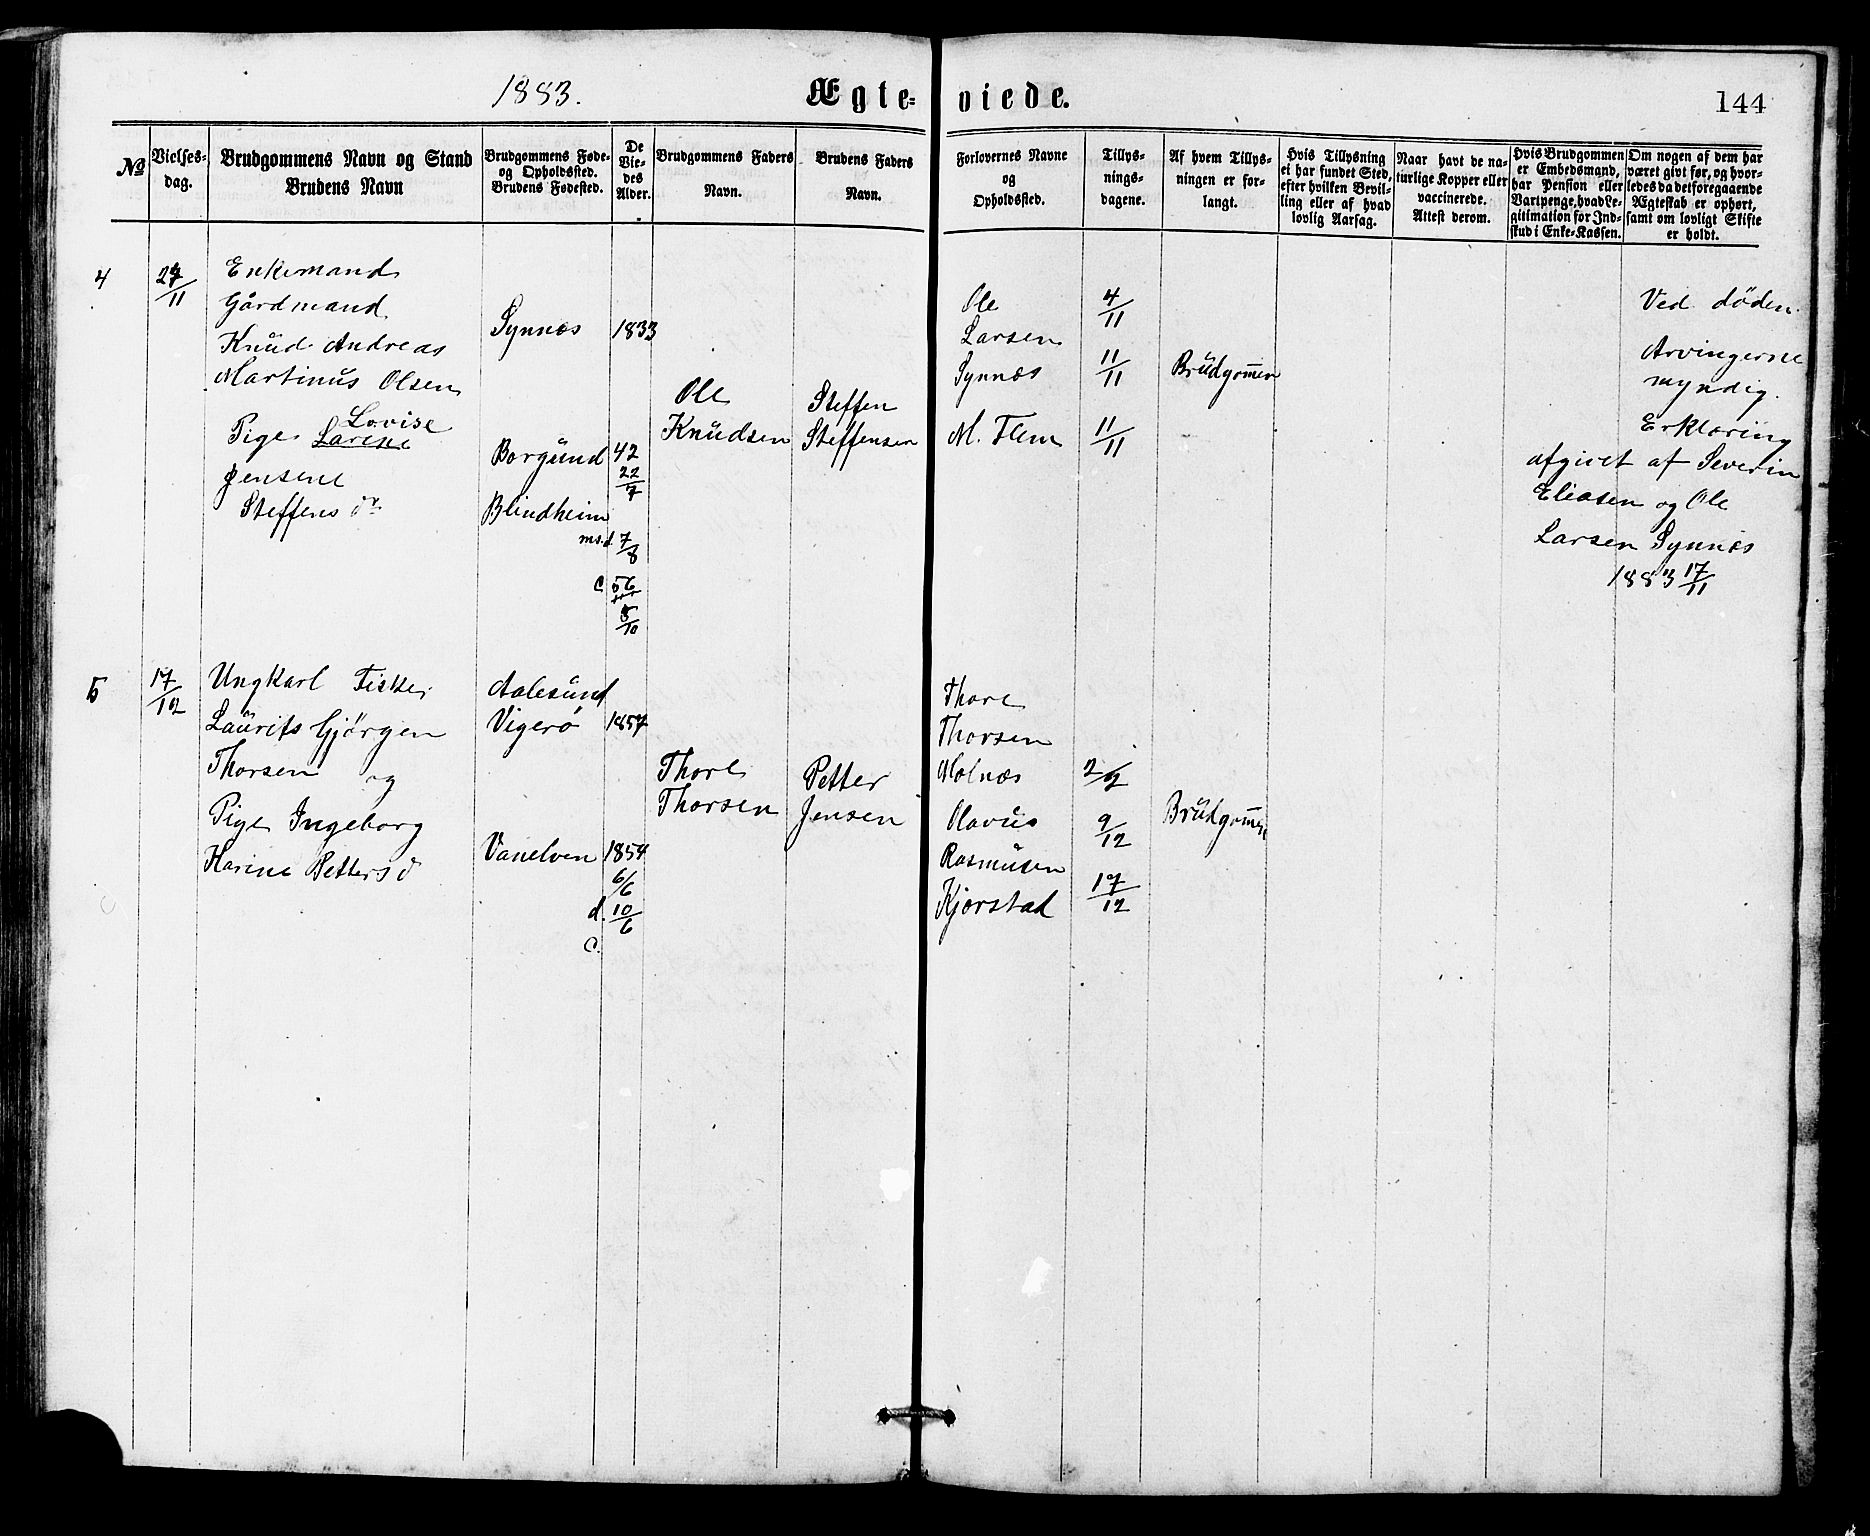 1883.
Ægte-
viede.
144
No
Vielses-
dag.
Brudgommens Navn og Stand
Brudens Navn
Brudgommens Føde-
og Opholdssted.
Brudens Fødested.
De
Vie-
des
Alder.
Brudgommens Faders
Navn.
Brudens Faders
Navn.
Forlovernes Navne
og
Opholdssted.
Tillys-
nings-
dagene.
Af hvem Tillys-
ningen er for-
langt.
Hvis Tillysning
ei har fundet Sted,
efter hvilken Bevil-
ling eller af hvad
lovlig Aarsag.
Naar havt de na-
turlige Kopper eller
vaccinerede.
Attest derom.
Hvis Brudgommen
er Embedsmand,
har Pension eller
Vartpenge, hvad Le-
gitimation for Ind-
skud i Enke-Kassen.
Om nogen af dem har
været givt før, og hvor-
ledes da det foregaaende
Ægteskab er ophørt,
samt om lovligt Skifte
er holdt.
4
/11
Enkemand
Gårdmand
Knud Andreas
Martinus Olsen
Pige Lovise
Larene
Jensene
Steffens dr
Synnæs
Borgund
Blindheim
1833
42
22/7
ms.d. 7/8
c 56
8/10
Ole
Knudsen
Steffen
Steffensen
Ole
Larsen
Synnæs
M. Flem
4/11
11/11
11/11
Brudgom̅en
Ved døden
Arvingerne
myndig.
Erklæring
afgivet af Severin
Eliasen og Ole
Larsen Synnæs
1883 17/11
5
17/12
Ungkarl Fisker
Laurits Gjørgen
Thorsen og
Pige Ingeborg
Karine Petters d
Aalesund
Vigerø
Vanelven
1857
1854
6/6
d. 10/6
c.
Thore
Thorsen
Petter
Jensen
Thore
Thorsen
Molnæs
Olavus
Rasmusen
Kjørstad
9/12
17/12
Brudgom̅en